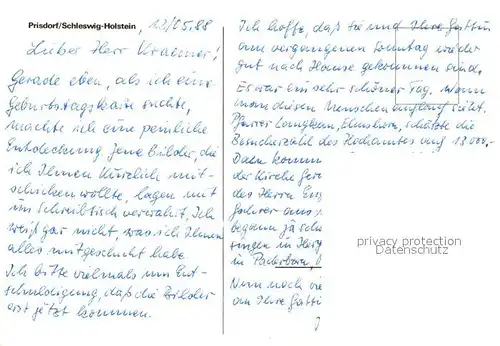 Prisdorf/Schleswig-Holstein, 12/05.88
Lieber Herr Kraemer!
Gerade eben, als ich eine
Geburtstagskarte suchte,
machte ich eine peinliche
Entdeckung. Jene Bilder, die
ich Ihnen kürzlich mit-
schicken wollte, lagen mit
im Schreibtisch verwahrt. Ich
weiß gar nicht, was ich Ihnen
alles mitgeschickt habe.
Ich bitte vielmals um Ent-
schuldigung, daß die Bilder
erst jetzt kommen.
Ich hoffe, daß Sie und Ihre Gattin
am vergangenen Sonntag wieder
gut nach Hause gekommen sind.
Es war ein sehr schöner Tag. Wenn
man diesen Menschen
Pfarrer Elmshorn, schätzte die
Besucherzahl des Hochamtes auf 18.000.-
Dann komm
der Kirche
des Herrn
Gahrer aus
begann ja
singen in
in Paderborn,
Nun noch
an Ihre Gatti
privacy protection
oldthing.de